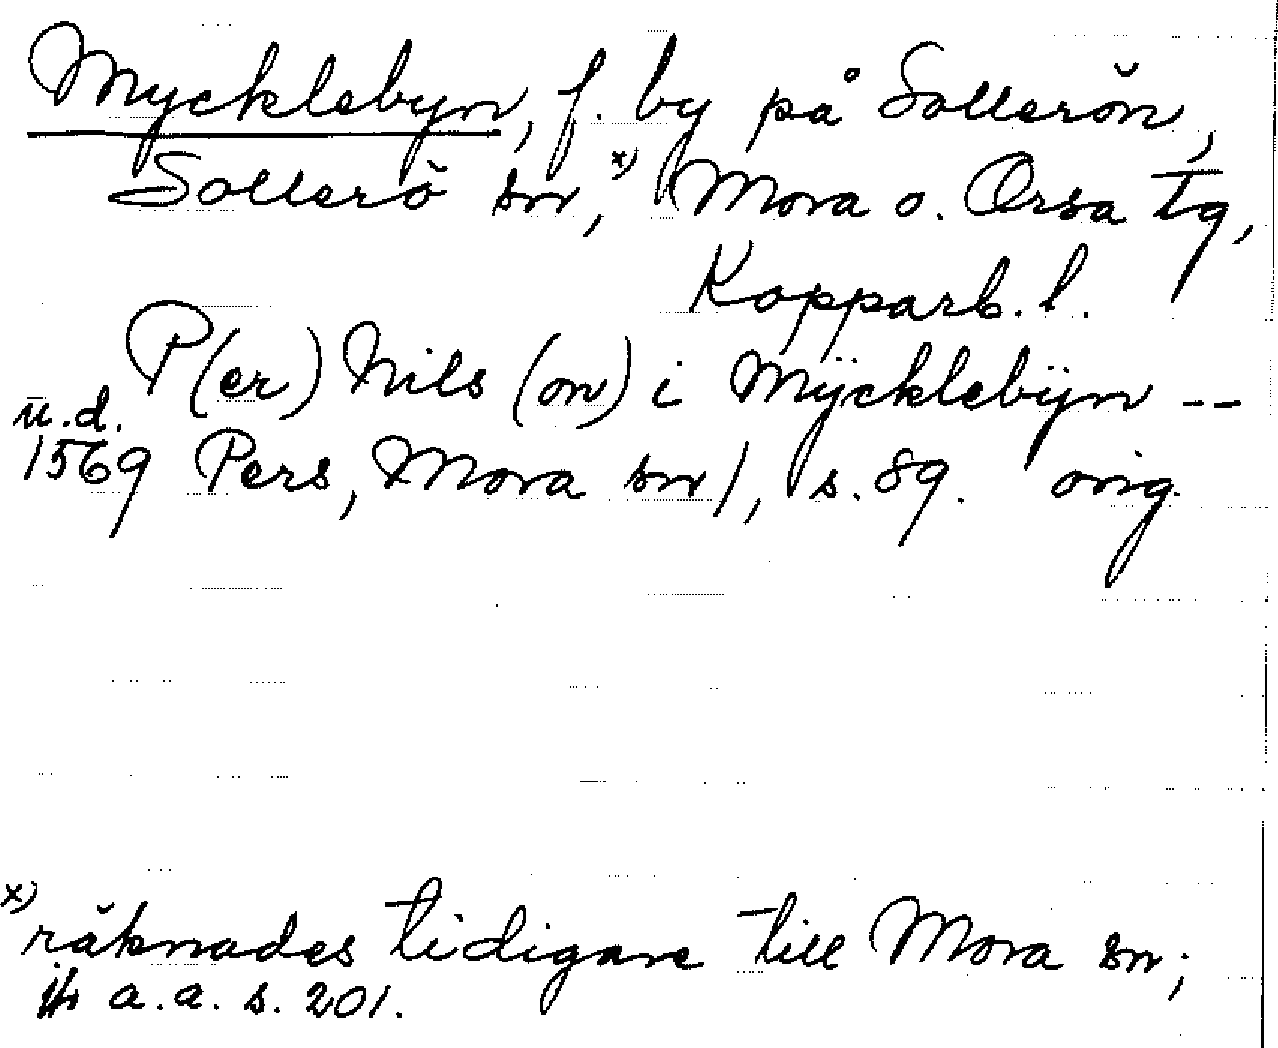 Mycklebyn, f. by på Sollerön,
Sollerö sn,x) Mora o. Orsa tg,
Kopparb. l.
P(er) Nils (on) i Mÿcklebÿn --
u.d.
1569 Pers, Mora sn), s. 89. orig.
x) räknades tidigare till Mora sn;
jfr a.a. s. 201.